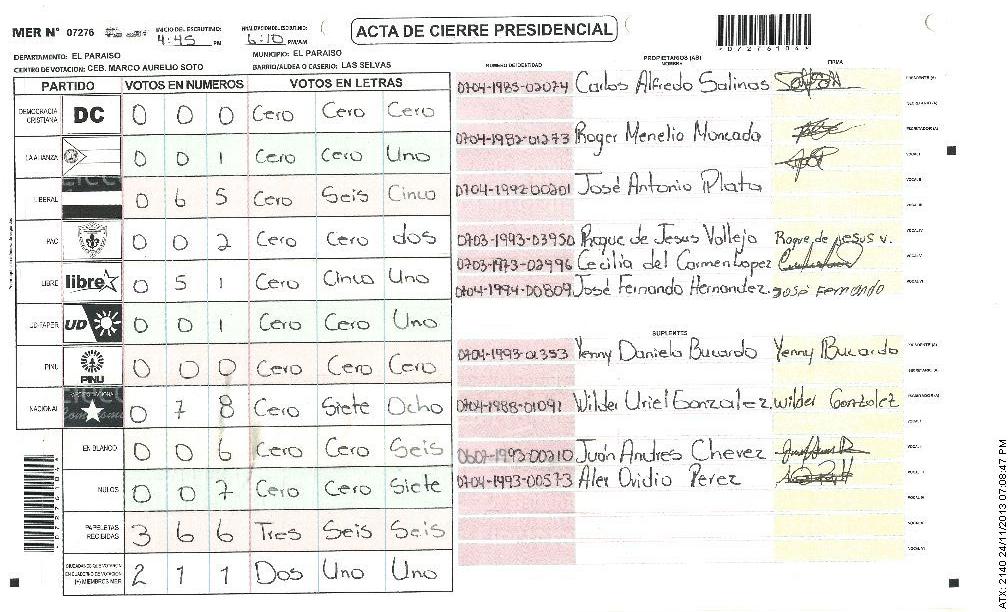 MER N° 07276 INICIO DEL ESCRUTINIO: 4:45 PM FINALIZACION DEL ESCRUTINIO: 6:10 PM/AM
ACTA DE CIERRE PRESIDENCIAL
DEPARTAMENTO: EL PARAISO MUNICIPIO: EL PARAISO
CENTRO DE VOTACION: CEB. MARCO AURELIO SOTO BARRIO/ALDEA O CASERIO: LAS SELVAS
PARTIDO VOTOS EN NUMEROS VOTOS EN LETRAS
DEMOCRACIA CRISTIANA DC 0 0 0 Cero Cero Cero
LA ALIANZA 0 0 1 Cero Cero Uno
LIBERAL 0 6 5 Cero Seis Cinco
PAC 0 0 2 Cero Cero dos
LIBRE libre 0 5 1 Cero Cinco Uno
UD-FAPER UD 0 0 1 Cero Cero Uno
PINU PINU 0 0 0 Cero Cero Cero
NACIONAL 0 7 8 Cero Siete Ocho
EN BLANCO 0 0 6 Cero Cero Seis
NULOS 0 0 7 Cero Cero Siete
PAPELETAS RECIBIDAS 3 6 6 Tres Seis Seis
CIUDADANOS QUE VOTARON EN CUADERNO DE VOTACION (+) MIEMBROS MER 2 1 1 Dos Uno Uno
NUMERO DE IDENTIDAD PROPIETARIOS (AS) NOMBRE FIRMA
0704-1985-02074 Carlos Alfredo Salinas PRESIDENTE (A)
0704-1982-01273 Roger Menelio Moncada
0704-1992-00201 José Antonio Plata
0703-1993-03950 Roque de Jesus Vallejo Roque de jesus v.
0703-1973-02996 Cecilia del Carmen Lopez
0704-1994-00809 José Fernando Hernandez. José Fernando
SUPLENTES
0704-1993-01353 Yenny Daniela Bucardo Yenny Bucardo
0704-1988-01091 Wilder Uriel Gonzalez. wilder Gonzalez
0602-1993-00210 Juán Andres Chevez
0704-1993-00573 Alex Ovidio Perez
ATX: 2140 24/11/2013 07:08:47 PM